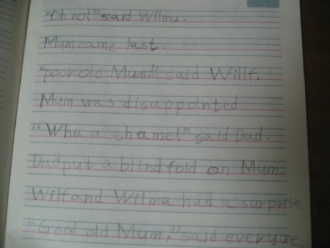 "Oh no!" said Wilma.
Mum came last.
"poor old Mum." said Wilf.
Mum was disappointed
"Wha a shame!" said Dad.
Dad put a blind fold on Mum.
Wilf and Wilma had a surprise
"Good old Mum." said everyone